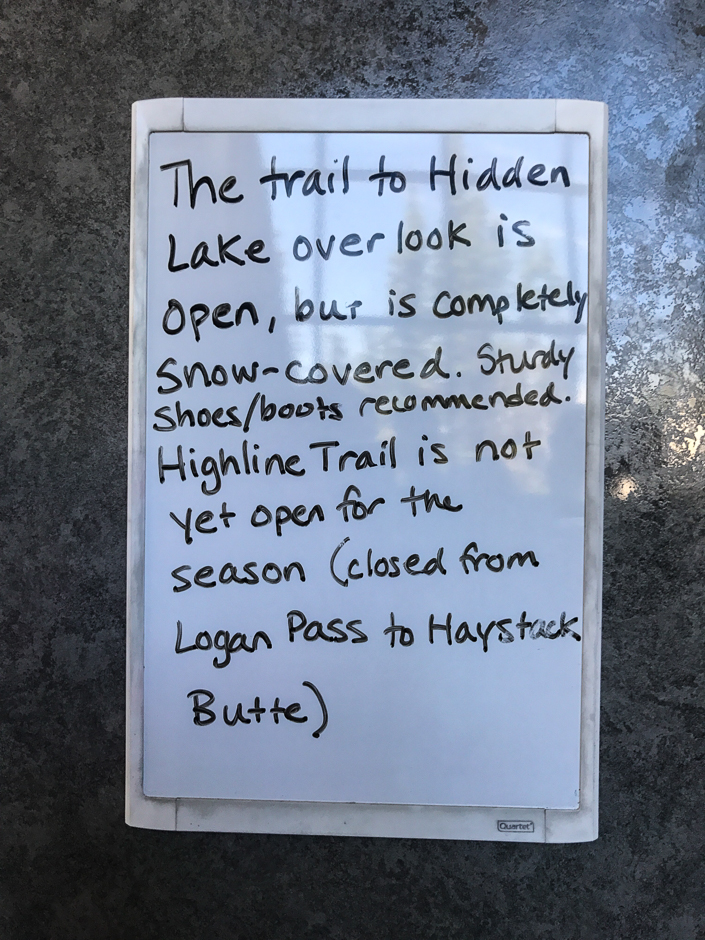 The trail to Hidden
Lake overlook is
open, but is completely
snow-covered. Sturdy
shoes/boots recommended.
Highline Trail is not
yet open for the
season (closed from
Logan Pass to Haystack
Butte)
Quartet